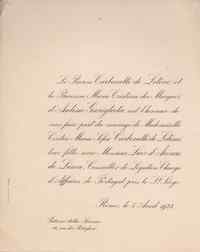 Le Baron Carbonelli de Letino et
la Baronne Maria Cristina des Marquis
d'Andrea Garigliola ont l'honneur de
vous faire part du mariage de Mademoiselle
Maria Sofia Carbonelli de Letino
leur fille avec Monsieur Luis d'
de Lima, Conseiller de Légation Chargé
d'Affaires de Portugal près le St. Siège.
Rome, le 5 Avril 1923